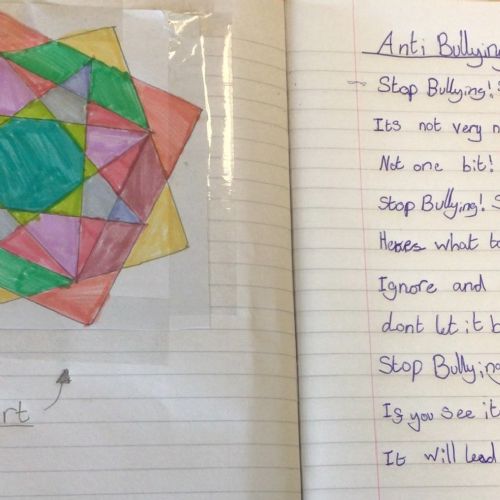 rt
Anti Bullying
Stop Bullying! S
Its not very n
Not one bit!
Stop Bullying! S
Heres what to
Ignore and
dont let it b
Stop Bullying
If you see it
It will lead